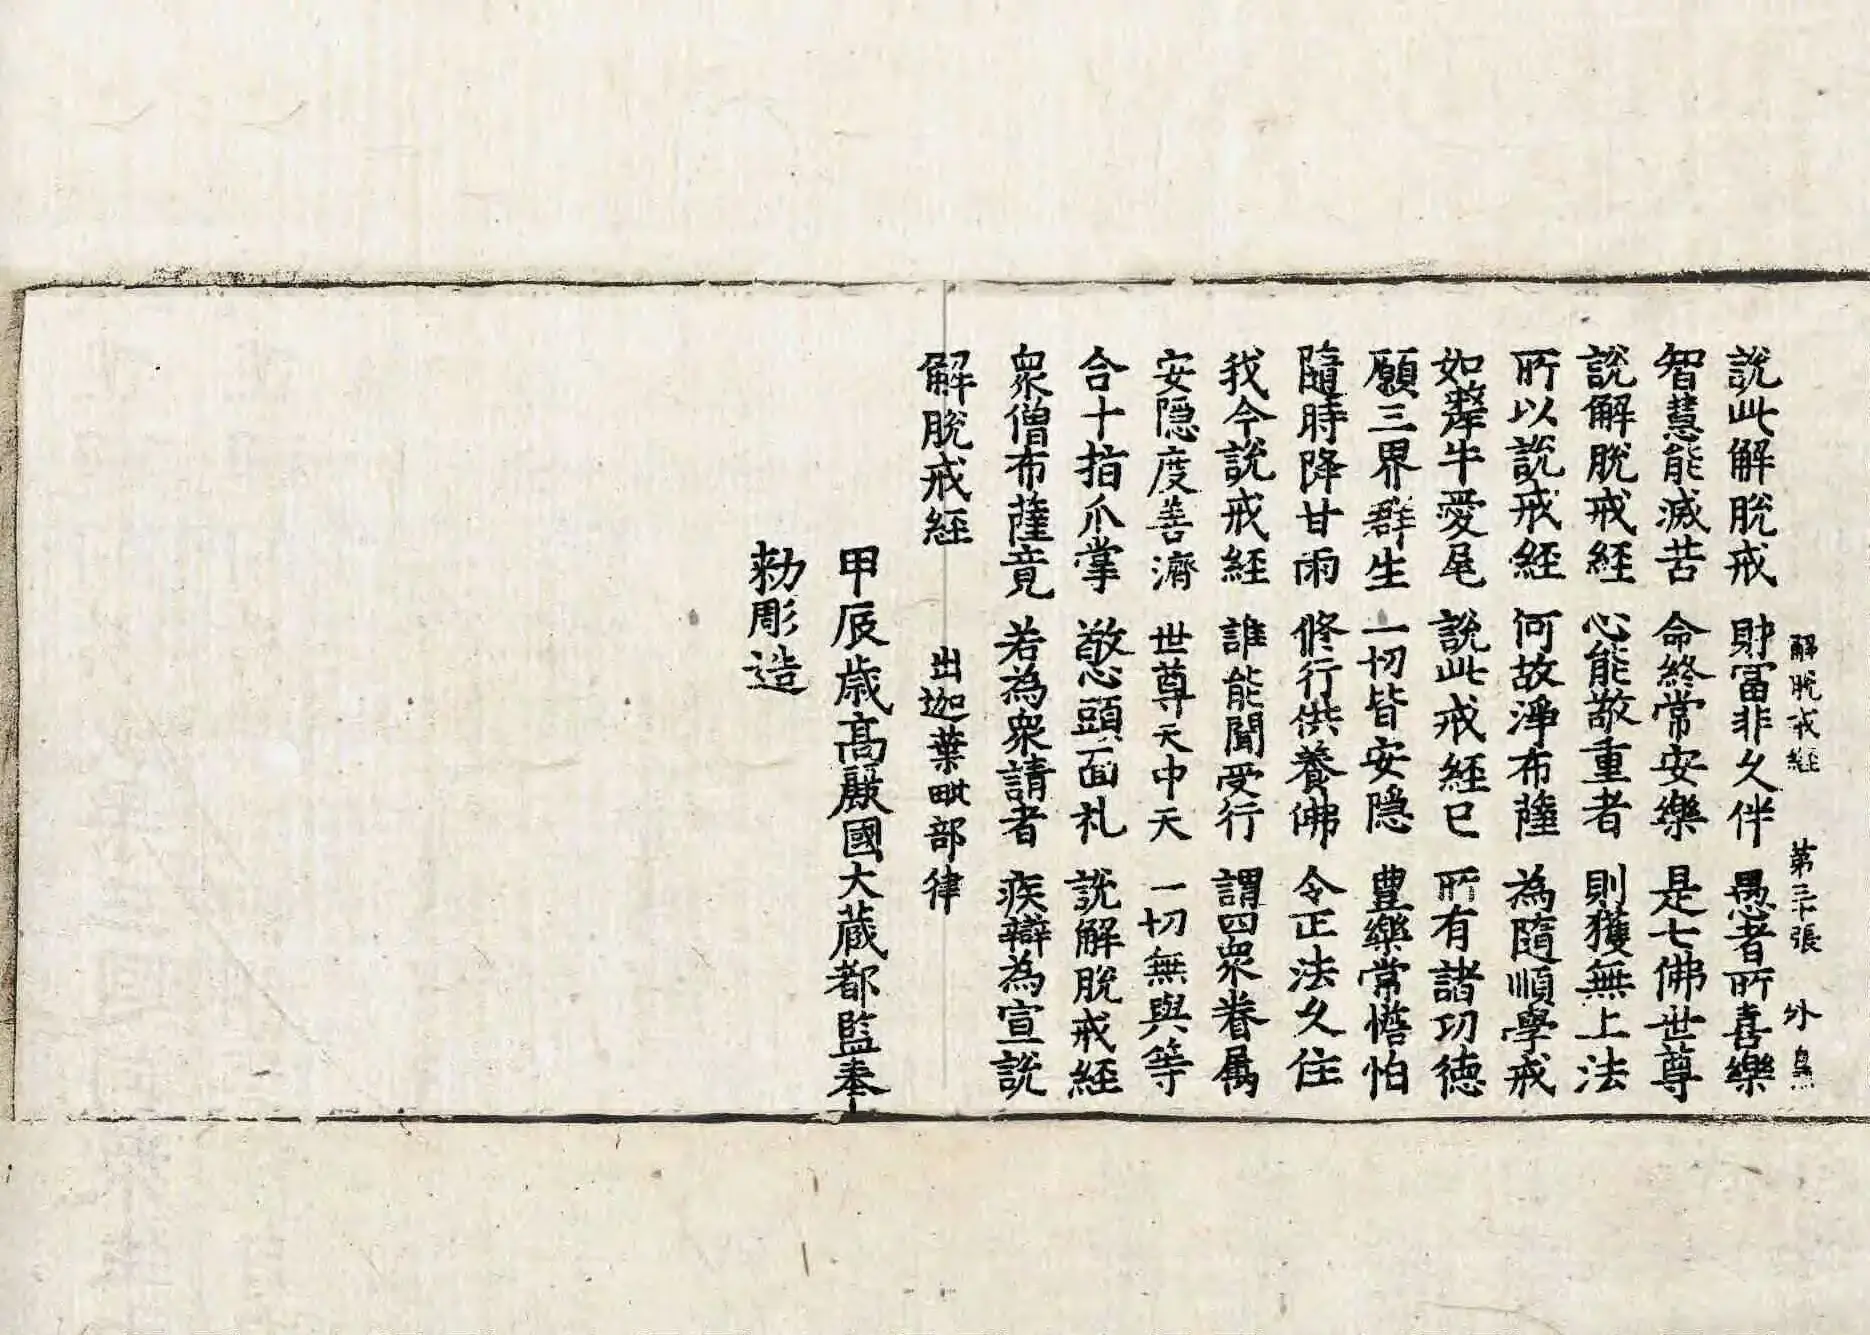 解脫戒經 第三十張 外
說此解脫戒 財冨非久伴 愚者所喜樂
智慧能滅苦 命終常安樂 是七佛世尊
說解脫戒經 心能敬重者 則獲無上法
所以說戒經 何故淨布薩 為隨順學戒
如犛牛愛尾 說此戒經已 所有諸功德
願三界群生 一切皆安隱 豊樂常憺怕
隨時降甘雨 修行供養佛 令正法久住
我今說戒經 誰能聞受行 謂四衆眷属
安隱度善濟 世尊天中天 一切無與等
合十指爪掌 敬心頭面礼 說解脫戒經
衆僧布薩竟 若為衆請者 疾辯為宣說
解脫戒經 出迦葉毗部律
甲辰歲高麗國大藏都監奉
勑彫造